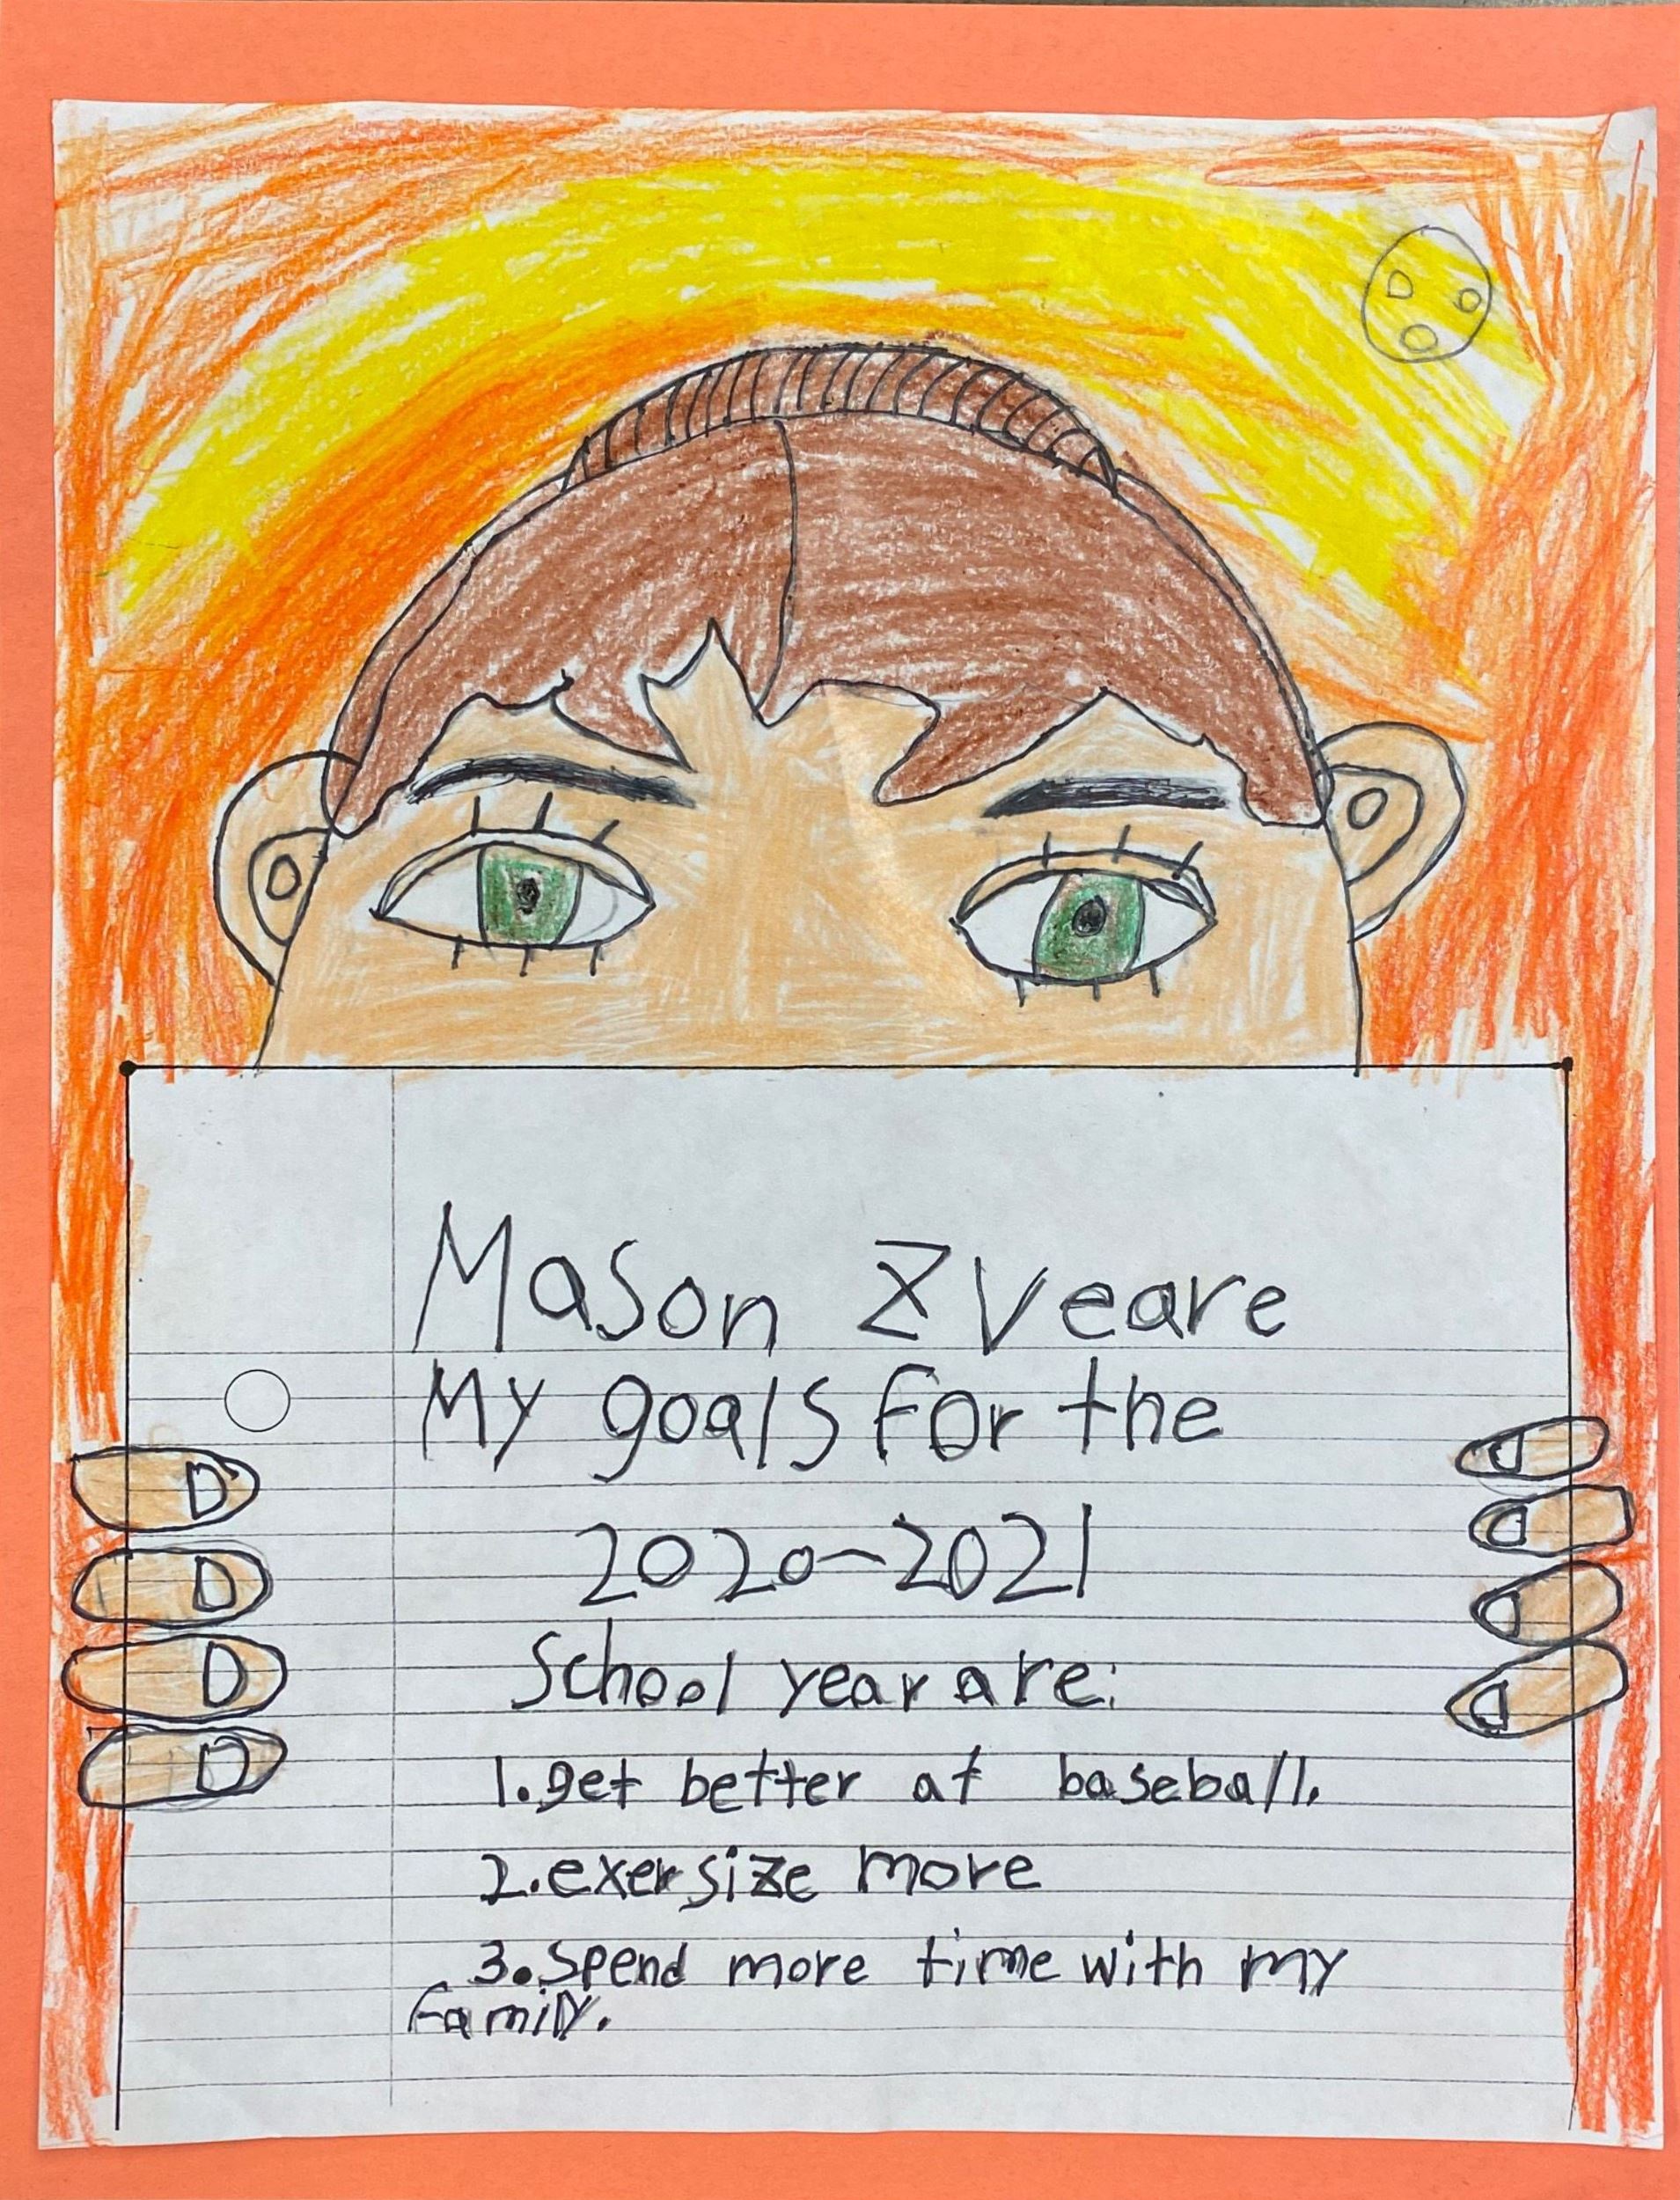 Mason Zveare
My goals for the
2020-2021
School year are:
1. get better at baseball.
2. exersize more
3. Spend more time with my
family.